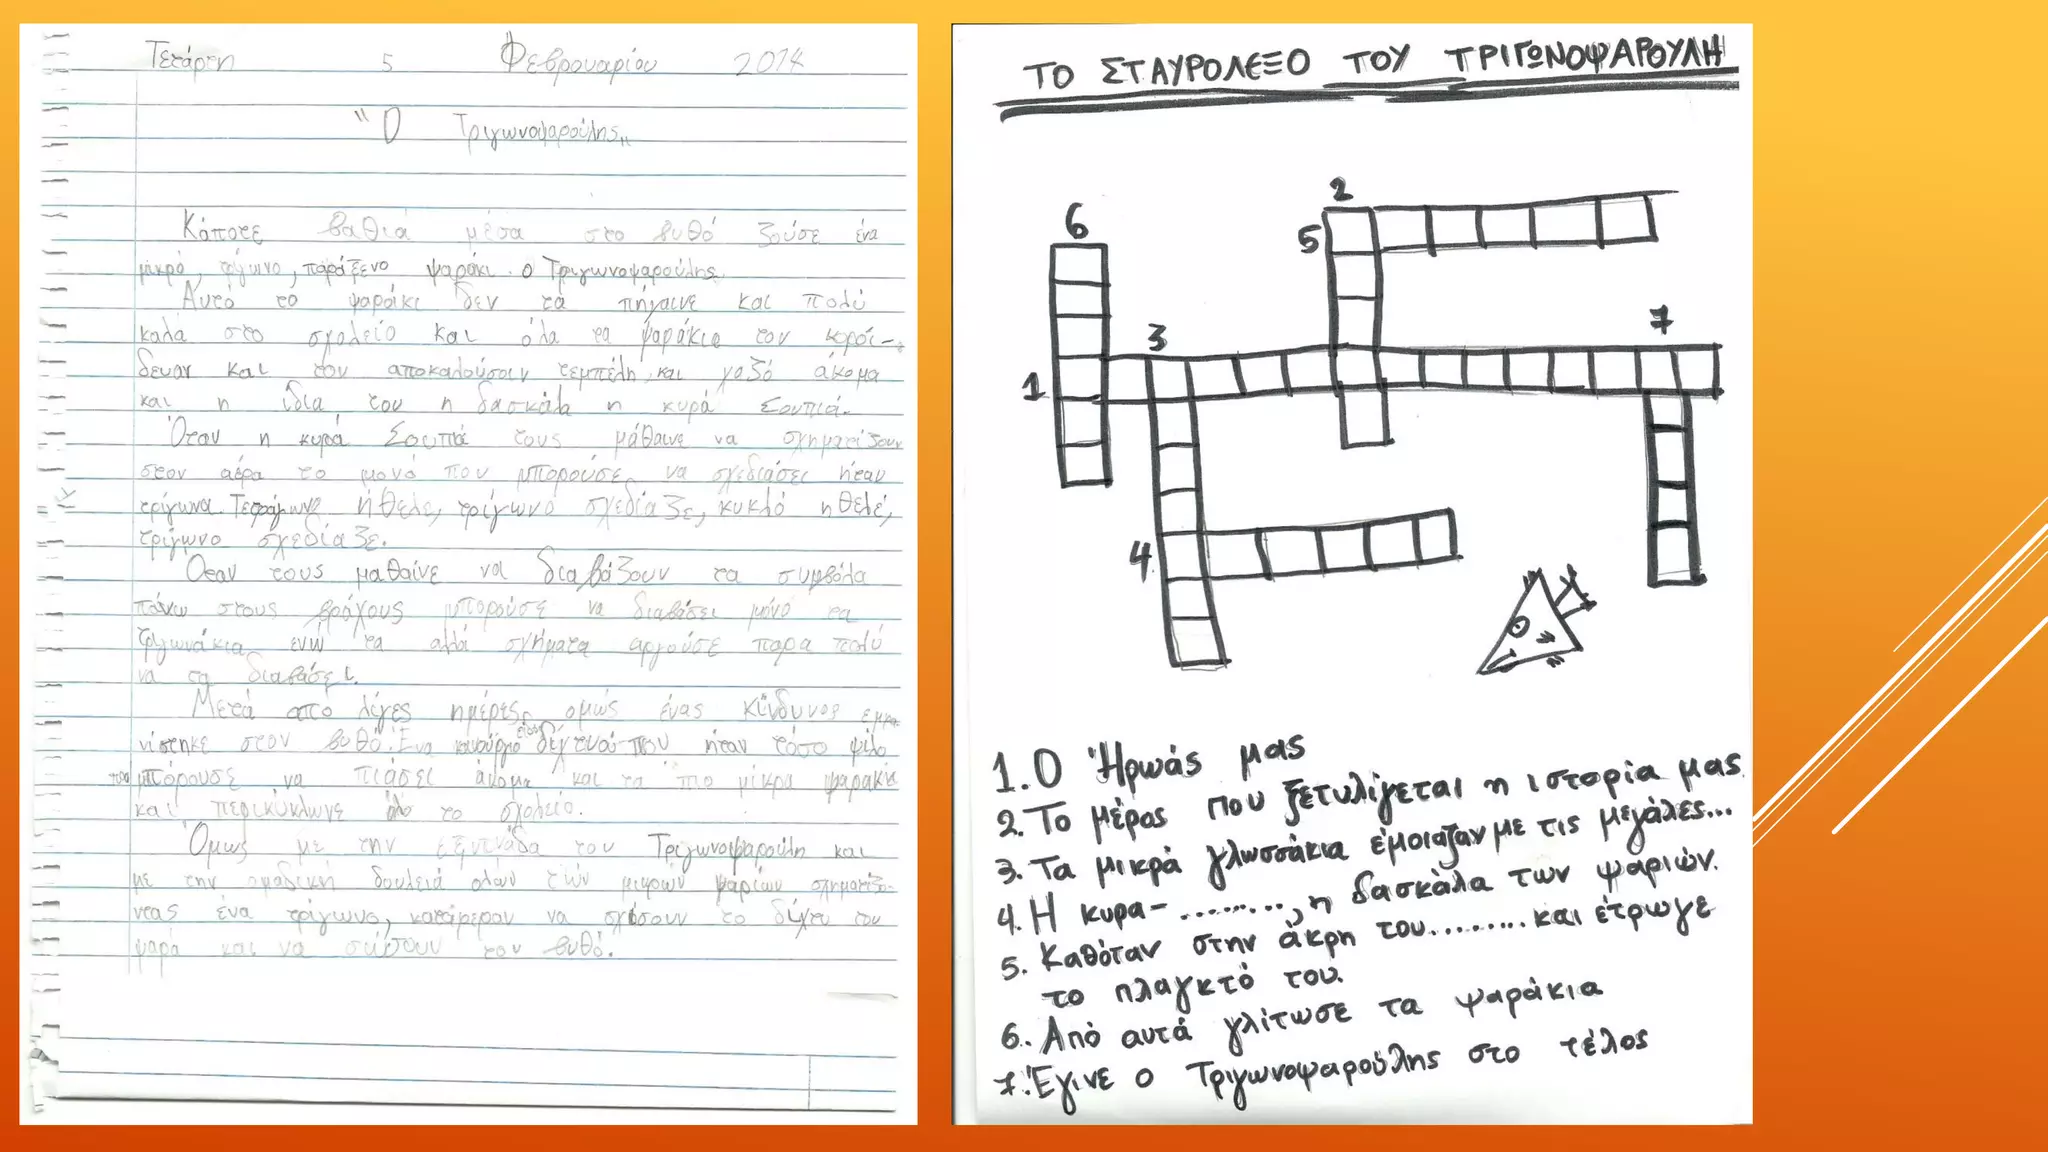 Τετάρτη 5 Φεβρουαρίου 2014
"Ο Τριγωνοψαρούλης"
Κάποτε βαθιά μέσα στο βυθό ζούσε ένα
μικρό, τρίγωνο, παράξενο ψαράκι. ο Τριγωνοψαρούλης.
Αυτό το ψαράκι δεν τα πήγαινε και πολύ
καλά στο σχολείο και όλα τα ψαράκια τον κορόι-
δευαν και τον αποκαλούσαν τεμπέλη και χαζό άκομα
και η ίδια του η δασκάλα η κυρά Σουπιά.
Όταν η κυρά Σουπιά τους μάθαινε να σχηματίζουν
στον αέρα το μονό που μπορούσε να σχεδιάσει ήταν
τρίγωνα. Τετράγωνο ήθελε, τρίγωνο σχεδίαζε, κυκλό ηθελέ,
τρίγωνο σχεδίαζε.
Όταν τους μαθαίνε να διαβάζουν τα συμβόλα
πάνω στους βράχους μπορούσε να διαβάσει μόνο τα
τριγωνάκια ενώ τα αλλά σχήματα αργούσε παρα πολύ
να τα διαβάσει.
Μετά από λίγες ημέρες ομώς ένας κίνδυνος εμφα-
νίστηκε στον βυθό. Ένα καινούργιο είδος δίχτυου που ήταν τόσο ψιλό
που μπόρουσε να πιάσει άκομα και τα πιο μίκρα ψαράκια
και περικύκλωνε όλο το σχολείο.
Όμως με την εξυπνάδα του Τριγωνοψαρούλη και
με την ομαδική δουλειά ολών των μικρών ψαρίων σχηματίζο-
ντας ένα τρίγωνο, κατάφεραν να σχίσουν το δίχτυ του
ψαρά και να σώσουν τον βυθό.
ΤΟ ΣΤΑΥΡΟΛΕΞΟ ΤΟΥ ΤΡΙΓΩΝΟΨΑΡΟΥΛΗ
6
2
5
7
3
1
4
1. Ο Ήρωάς μας
2. Το μέρος που ξετυλίγεται η ιστορία μας
3. Τα μικρά γλωσσάκια έμοιαζαν με τις μεγάλες...
4. Η κυρα-........., η δασκάλα των ψαριών.
5. Καθόταν στην άκρη του......... και έτρωγε
το πλαγκτό του.
6. Από αυτά γλίτωσε τα ψαράκια
7. Έγινε ο Τριγωνοψαρούλης στο τέλος